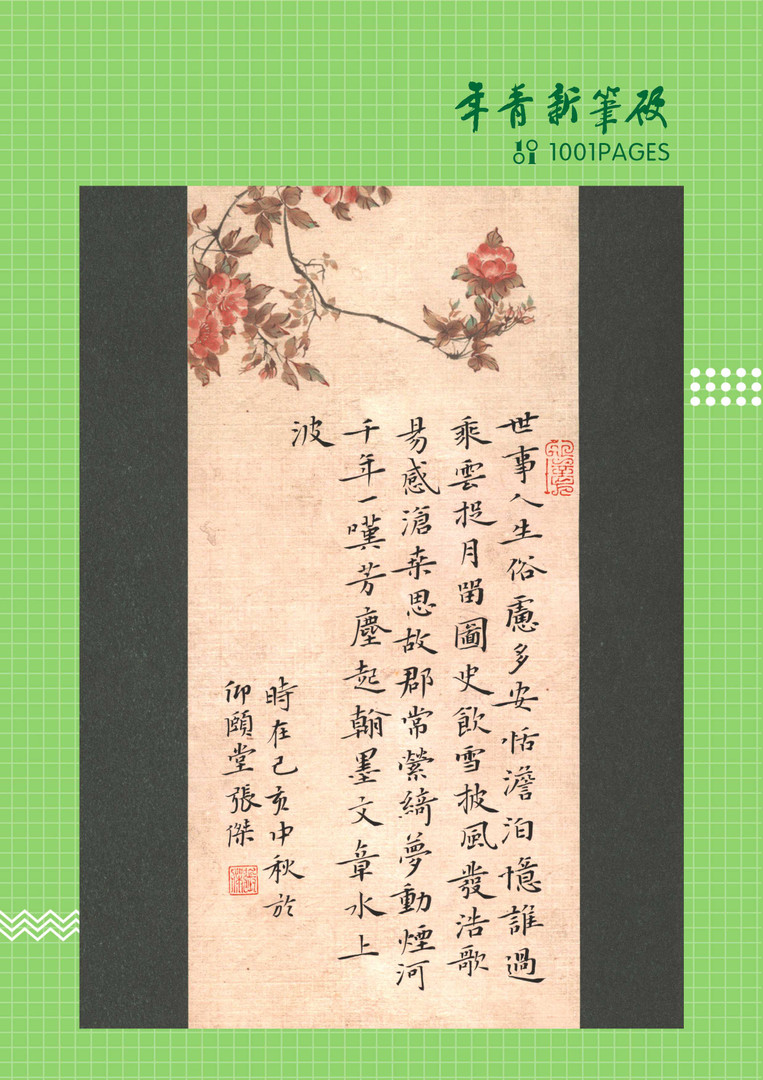 年青新筆陣
1001PAGES
世事人生俗慮多安恬澹泊憶誰過
乘雲捉月留圖史飲雪披風發浩歌
易感滄桑思故郡常縈綺夢動煙河
千年一嘆芳塵起翰墨文章水上
波
時在己亥中秋於
仰頤堂張傑